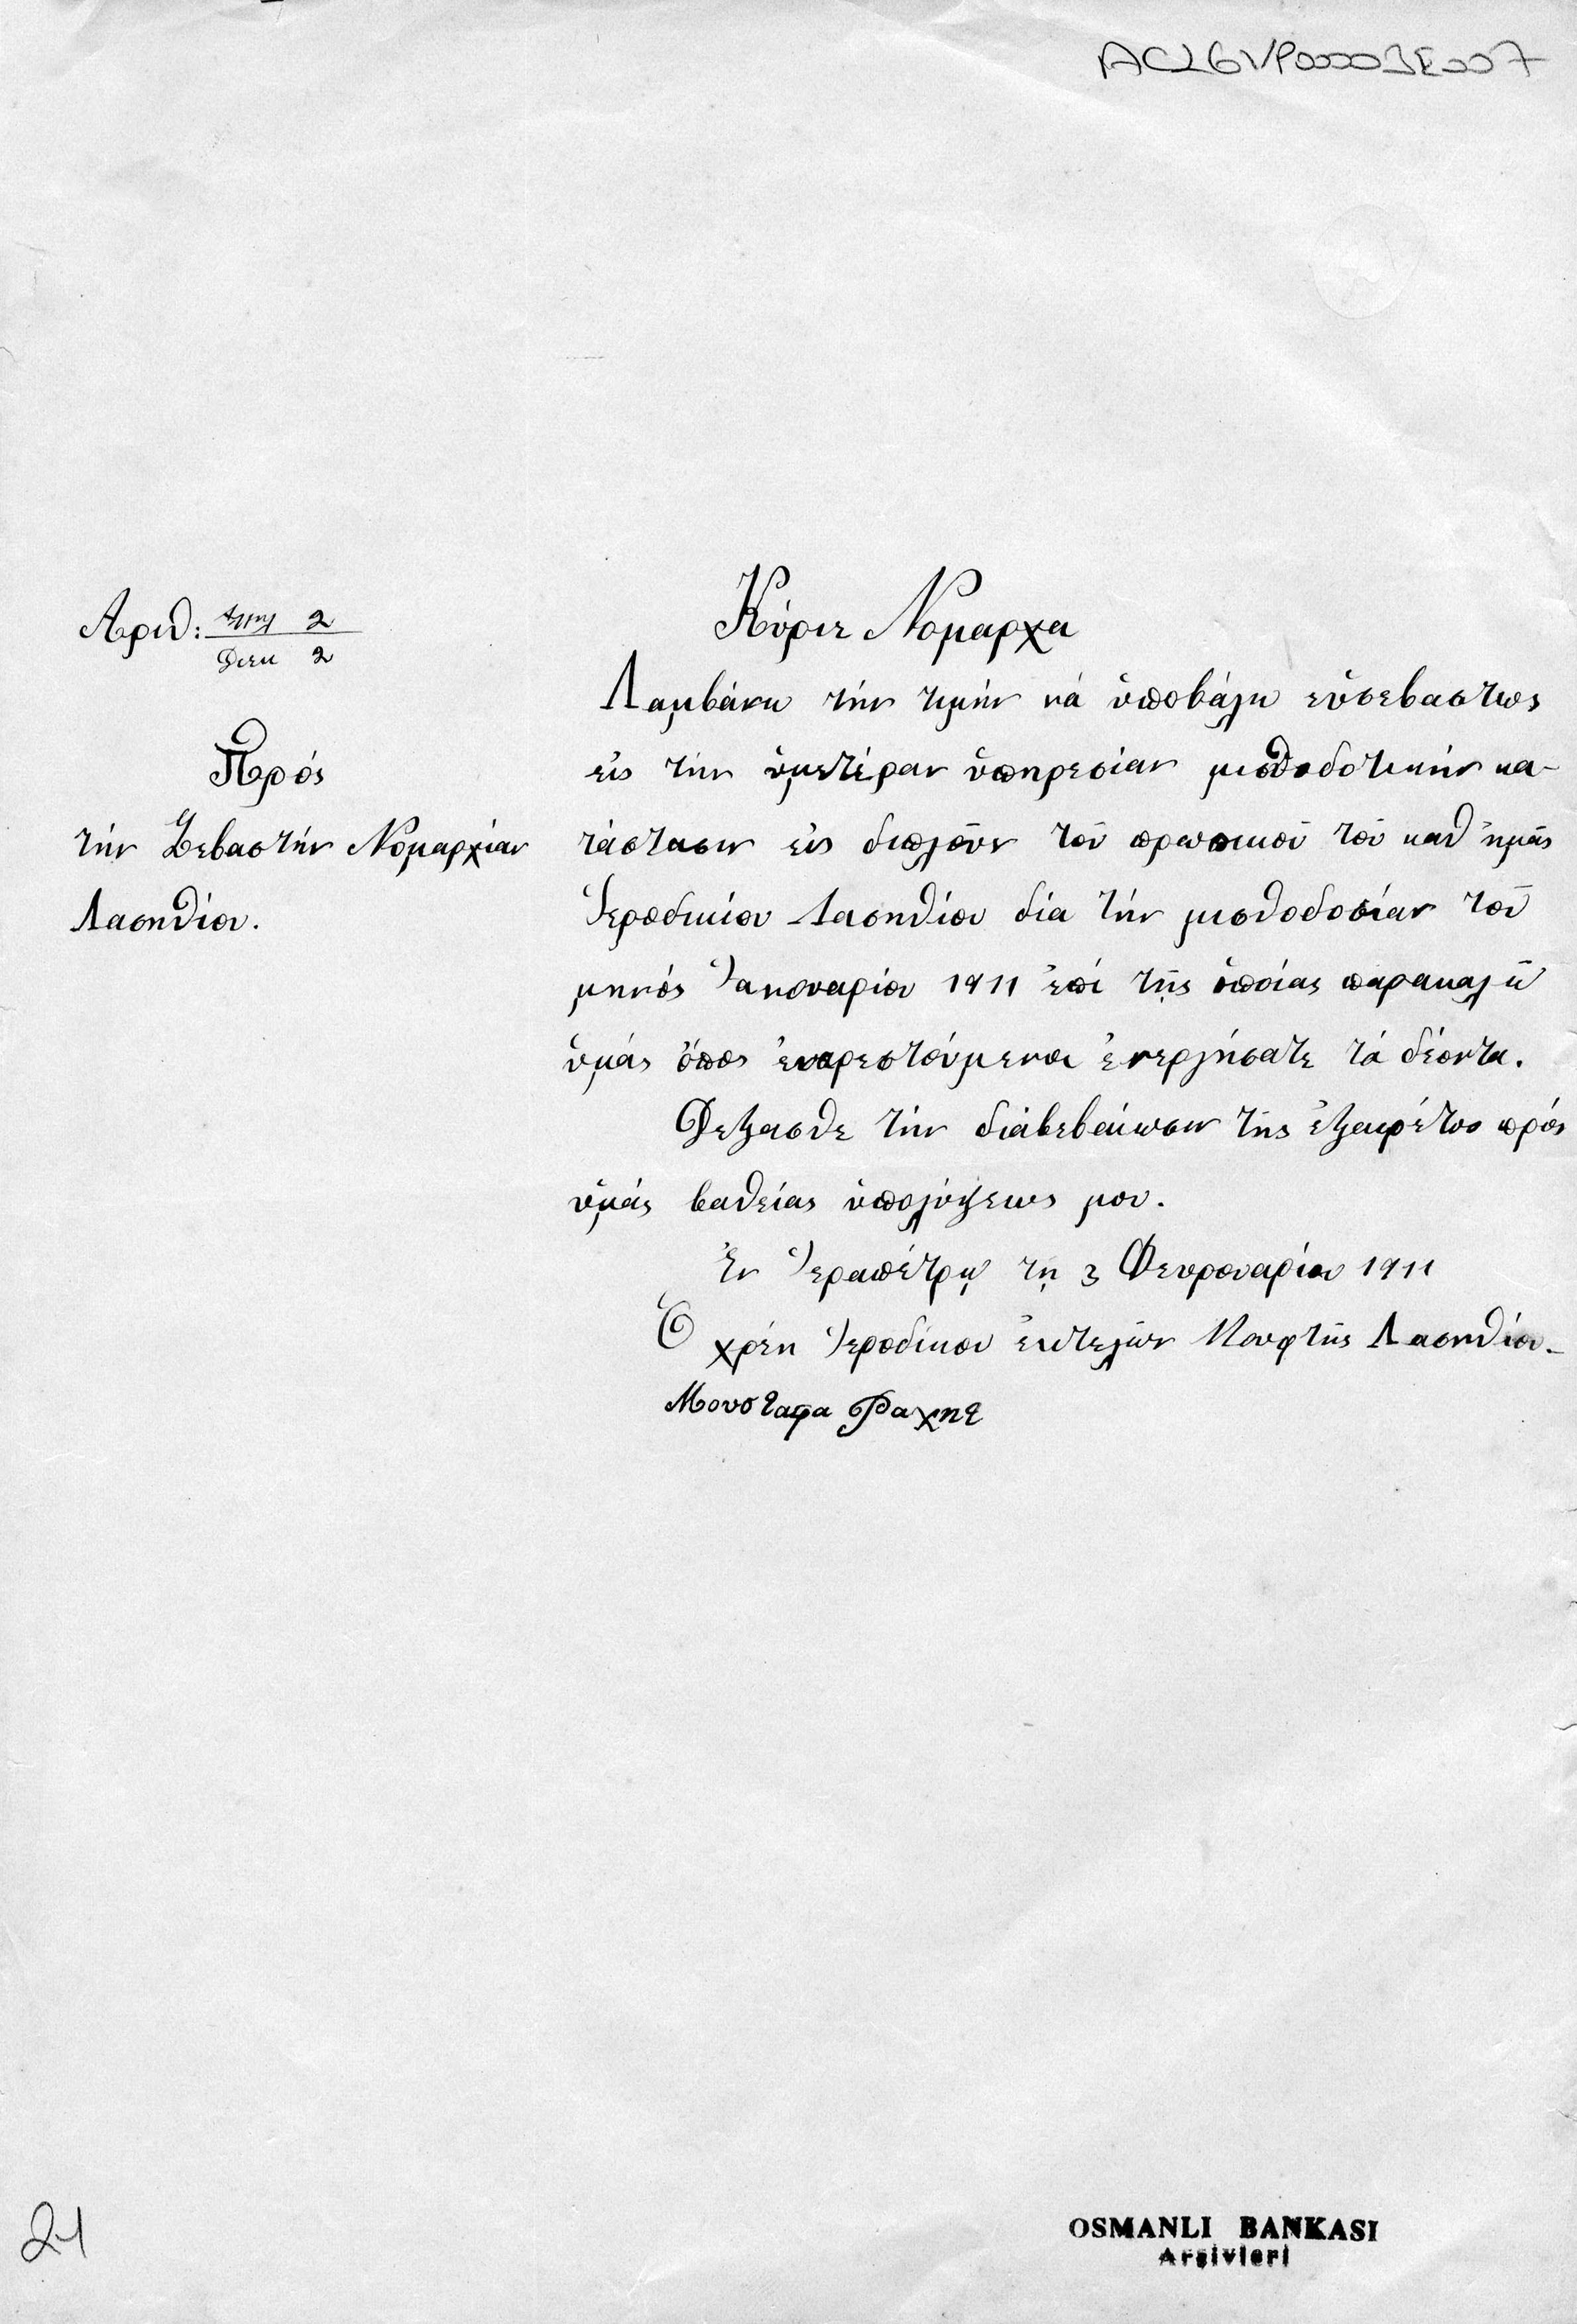 AC26VP00003E007
Ἀριθ: Διεκ 2
2
Πρός
τήν Σεβαστήν Νομαρχίαν
Λασηθίου.
Κύριε Νομάρχα
Λαμβάνω τήν τιμήν νά ὑποβάλω εὐσεβαστως
εἰς τήν ὑμετέραν ὑπηρεσίαν μισθοδοτικήν κα-
τάστασιν εἰς διπλοῦν τοῦ προσωπικοῦ τοῦ καθ ἡμᾶς
Ἱεροδικίου Λασηθίου διά τήν μισθοδοσίαν τοῦ
μηνός Ἰανουαρίου 1911 ἐπί τῆς ὁποίας παρακαλῶ
ὑμάς ὅπως ἐναρεστούμενοι ἐνεργήσατε τά δέοντα.
Δεξασθε τήν διαβεβαίωσιν τῆς ἐξαιρέτου πρός
ὑμάς βαθείας ὑπολήψεως μου.
Ἐν Ἱεραπέτρᾳ τῃ 3 Φευρουαρίου 1911
Ὁ χρέη Ἱεροδίκου ἐκτελῶν Μουφτῆς Λασηθίου.
Μουσταφα Ραχητ
21
OSMANLI BANKASI
Arşivleri